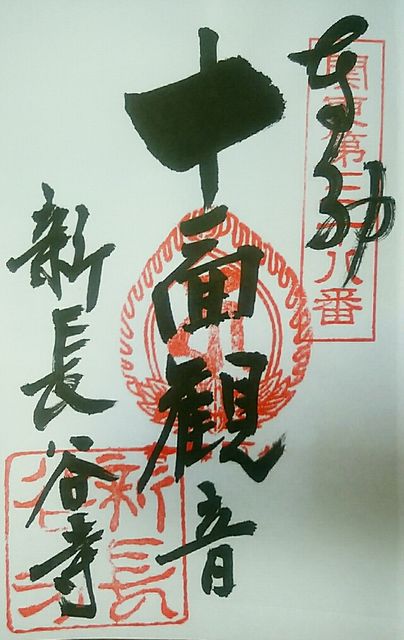 関東第三十八番
十一面観音
新長谷寺
新長
谷寺